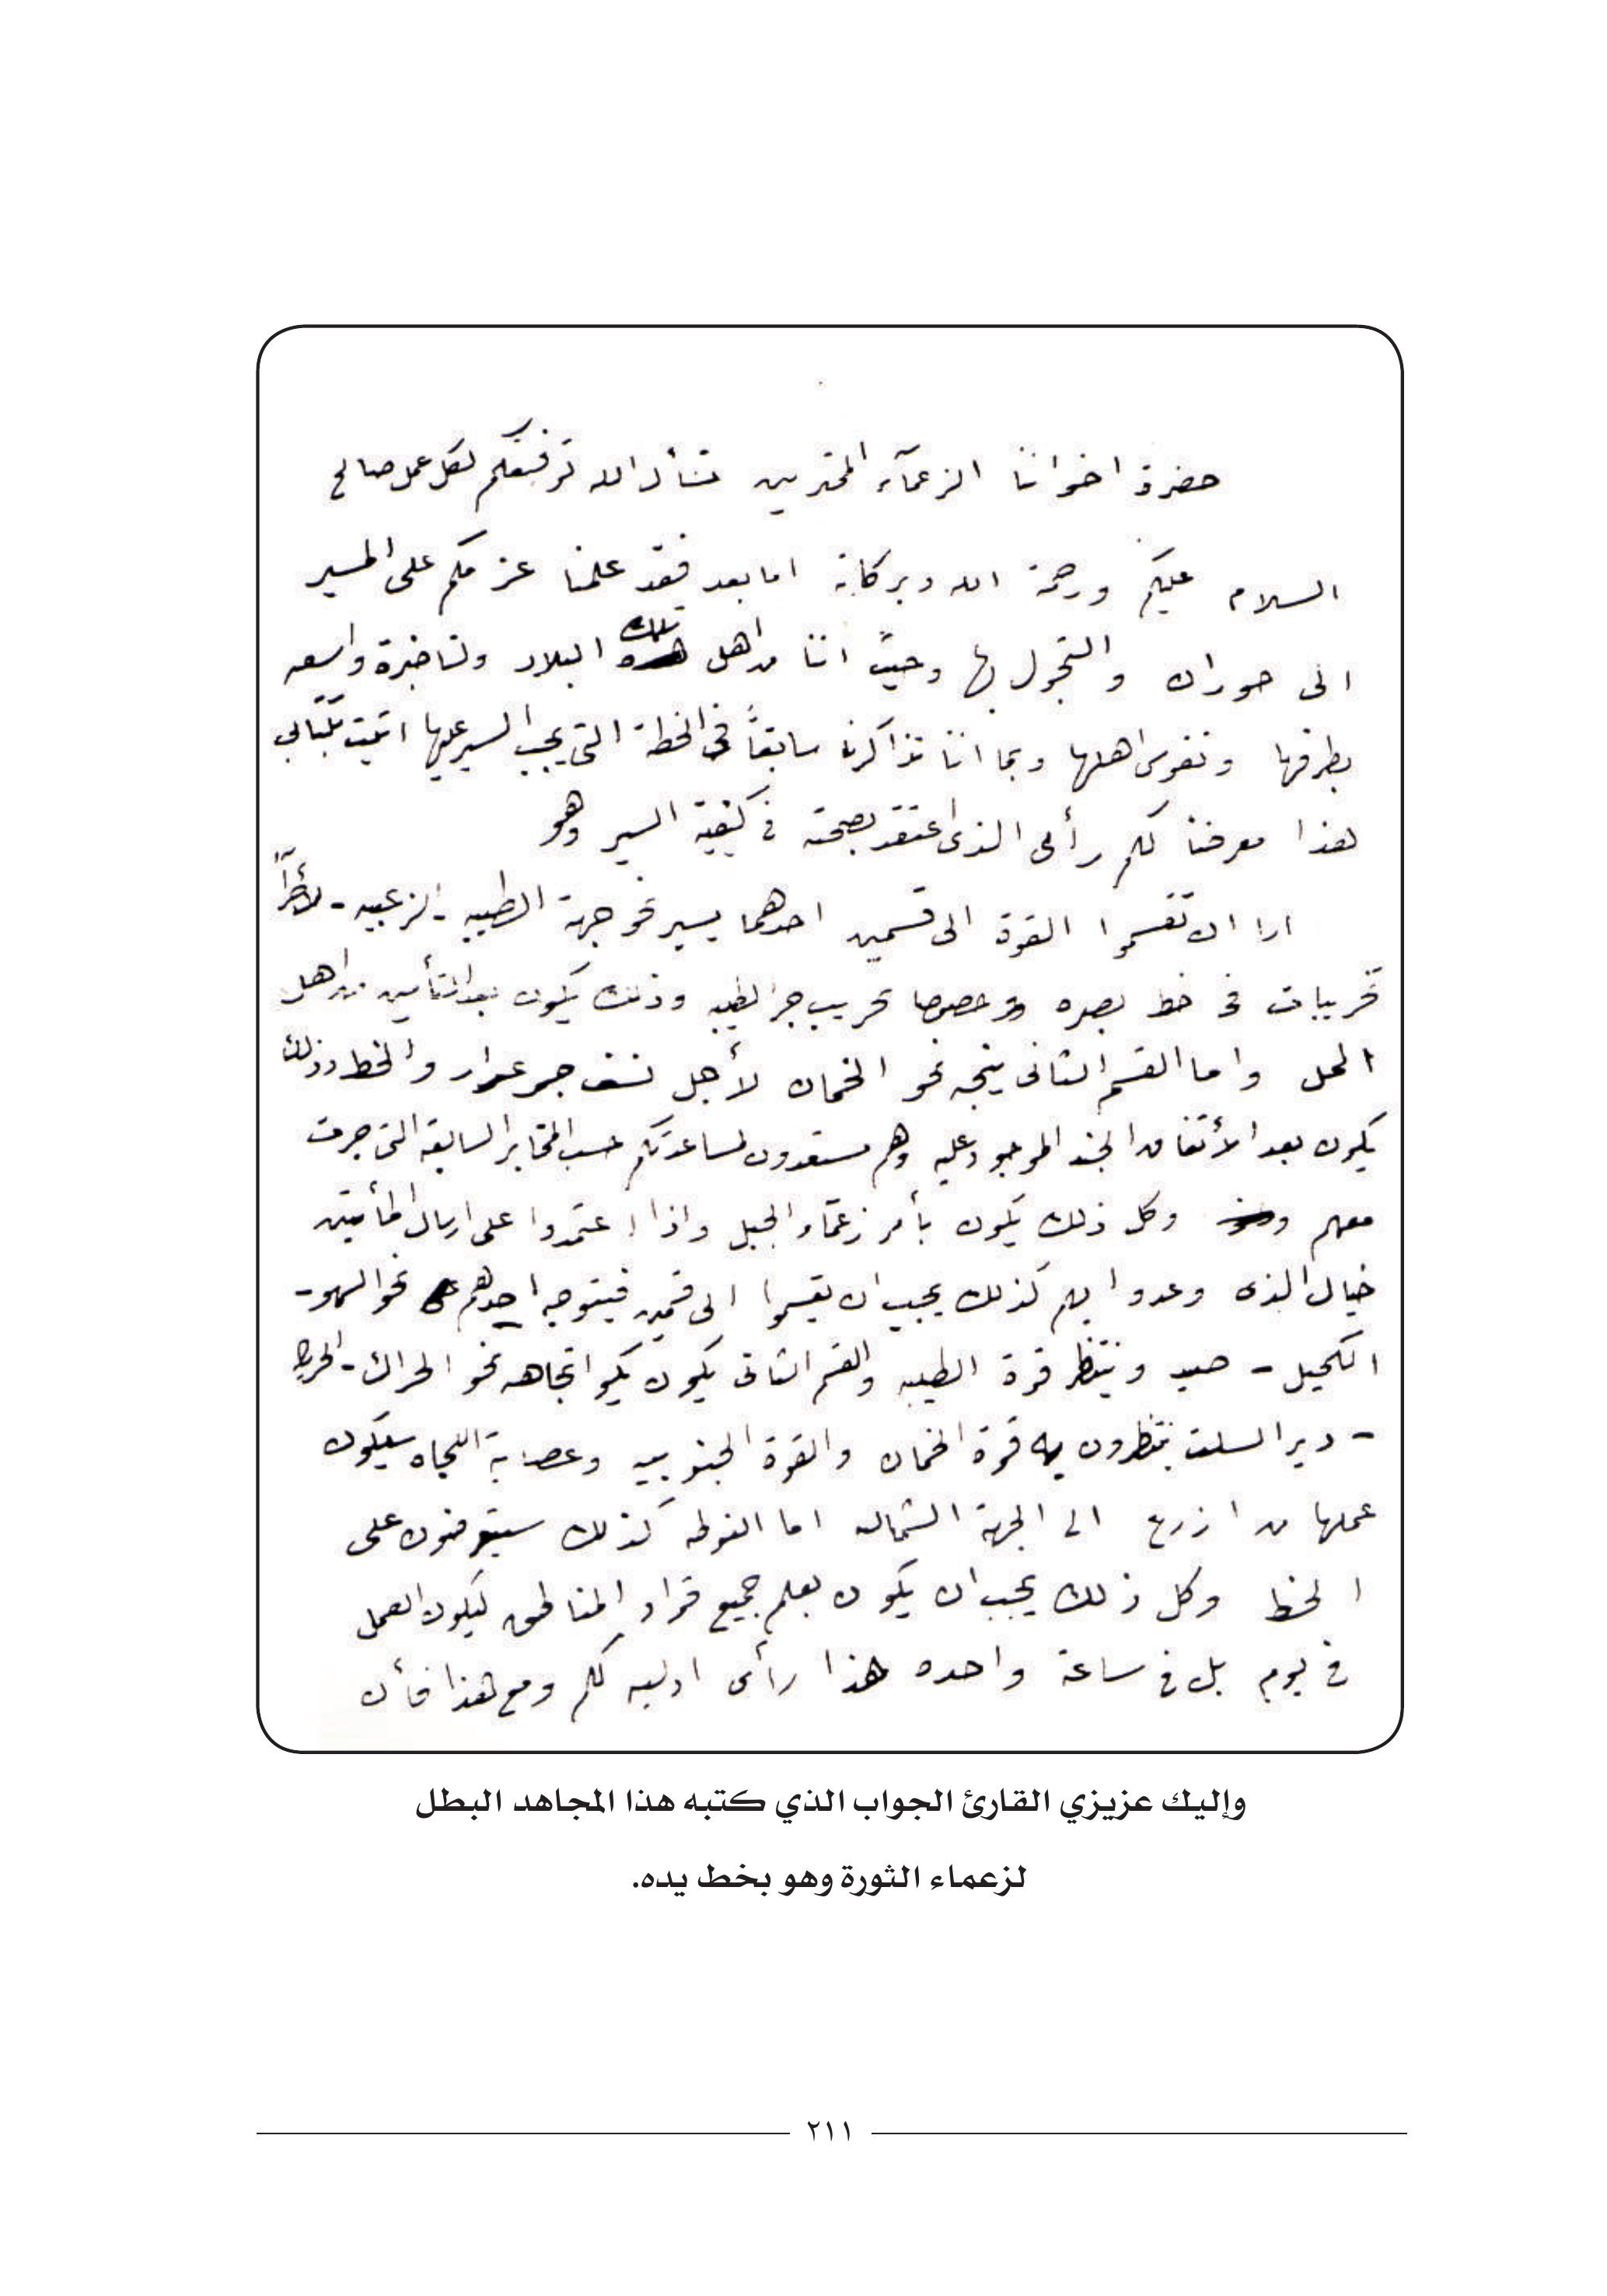 حضرة اخواننا الزعمآء المحترمين نسأل الله توفيقكم لكل عمل صالح
السلام عليكم ورحمة الله وبركاته اما بعد فقد علمنا عزمكم على المسير
الى حوران والتجول بها وحيث اننا من اهل تلك البلاد ولنا خبرة واسعه
بطرقها ونفوس اهلها وبما اننا تذاكرنا سابقاً في الخطة التي يجب السير عليها اتيت بكتابي
هذا معرضاً لكم رأى الذى اعتقد بصحته في كيفية السير وهو
ارا ان تقسموا القوة الى قسمين احدهما يسير نحو جهة الطيبه - الزعبيه -
تخريبات في خط بصره وخصوصا تخريب جسر الطيبه وذلك يكون بعد التأمين من اهل
المحل واما القسم الثانى يتجه نحو الخمان لأجل نسف جسر عرار والخط وذلك
يكون بعد الأتفاق من الجند الموجود عليه وهم مستعدون لمساعدتكم حسب المخابر السابقه التى جرت
معهم وكل ذلك يكون بأمر زعمآء الجبل واذا اعتمدوا على ارسال المأتين
خيال الذى وعدوا بهم كذلك يجب ان يقسموا الى قسمين فيتوجه احدهم نحو السهو -
الكحيل - صيد وينتظر قوة الطيبه والقسم الثانى يكون يكو اتجاهه نحو الحراك - الحريك
- دير السلت ينتظرون به قوة الخمان والقوة الجنوبيه وعصابة اللجاه سيكون
عملها من ازرع الى الجهة الشماله اما الغوطه كذلك سيتعرضون على
الخط وكل ذلك يجب ان يكون بعلم جميع قواد المناطق ليكون العمل
في يوم بل في ساعة واحده هذا رأى ادليه لكم ومع هذا فأن
وإليك عزيزي القارئ الجواب الذي كتبه هذا المجاهد البطل
لزعماء الثورة وهو بخط يده.
٢١١